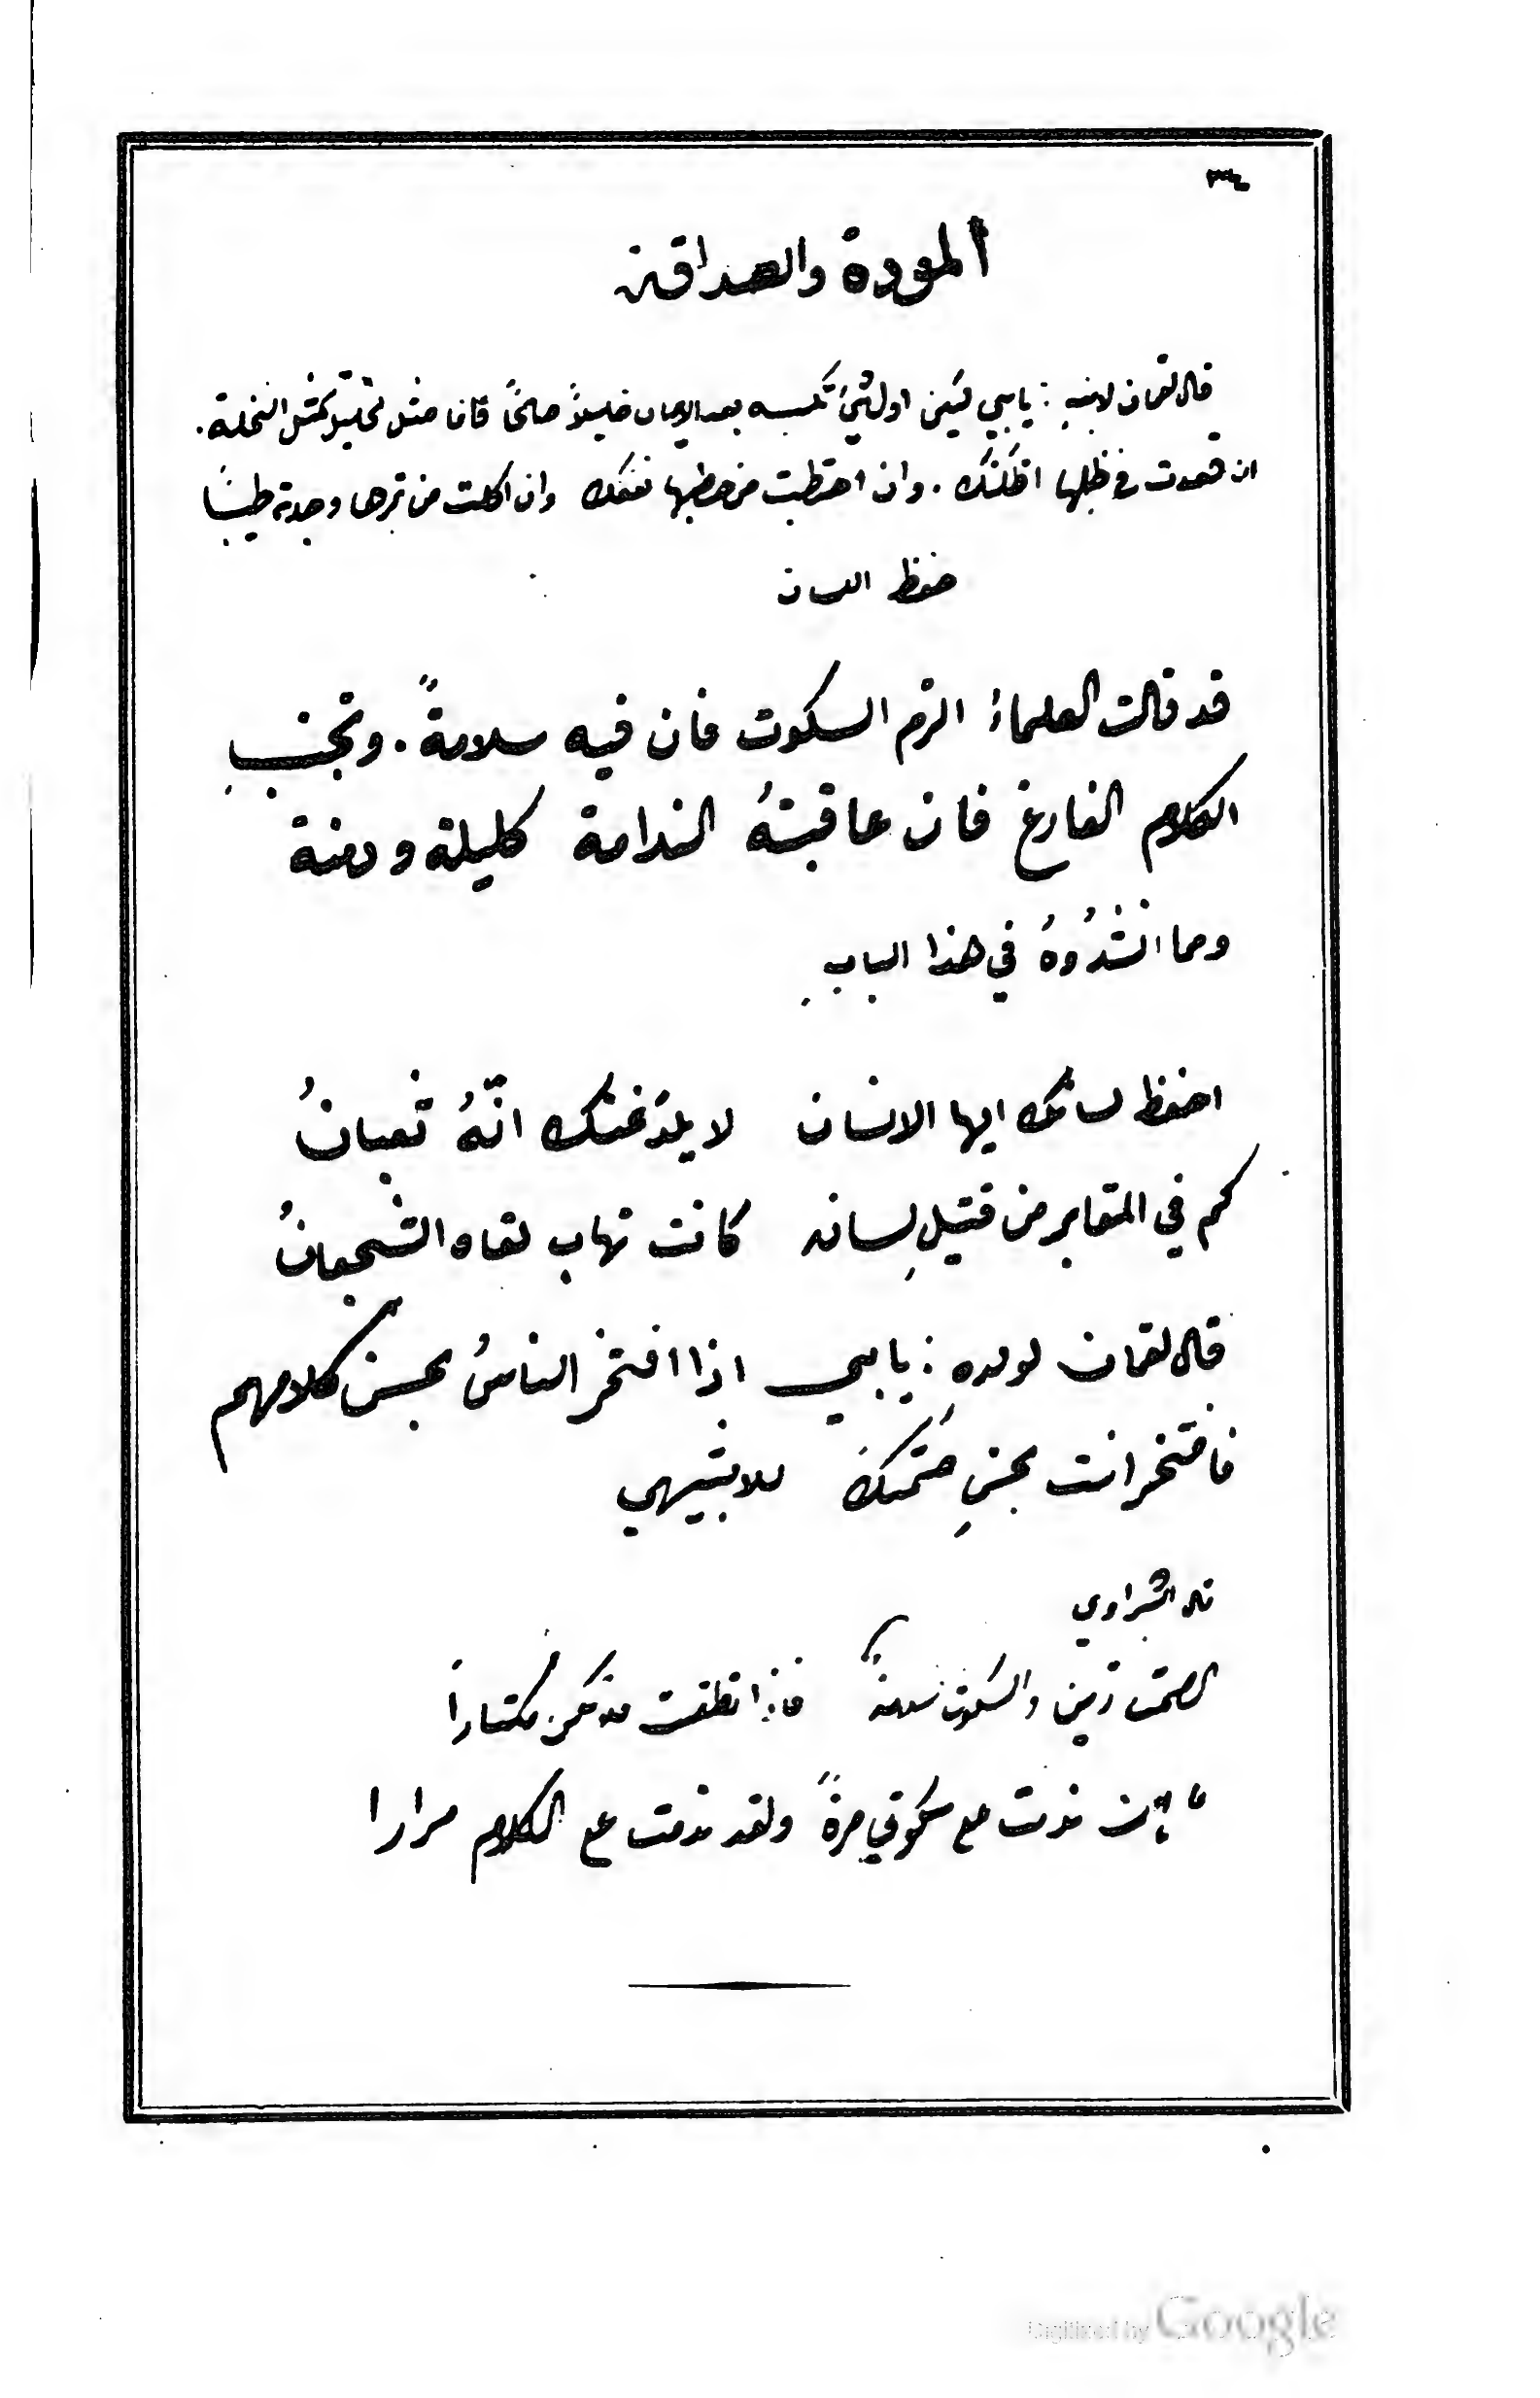 ٣٤
المودة والصداقة
قال لقمان لابنهِ : يا بني ليكن اول شيءٍ تكسبه بعد الايمان خليلاً صالحًا فانما مثل الخليل كمثل النخلة .
ان قعدت في ظلها اظلتك . وان احتطبت من حطبها نفعك وان اكلت من ثمرها وجدته طيبًا
حفظ اللسان
قد قالت العلماءُ الزم السكوت فان فيه سلامةً . وتجنبِ
الكلام الفارغ فان عاقبتهُ الندامة كليلة ودمنة
ومما انشدُوهُ في هذا البابِ
احفظ لسانك ايها الانسان لا يلدغنك انّهُ ثعبانُ
كم في المقابر من قتيلِ لسانه كانت تهاب لقاه الشجعانُ
قال لقمان لولدهِ : يا بني اذا افتخر الناسُ بحسن كلامهم
فافتخر انت بحسنِ صَمتكَ للابشيهي
قال الشبراوي
الصمت زين والسكوت سلامةٌ فاذا نطقت فلا تكن مكثاراً
ما إن ندمت على سكوتي مرةً ولقد ندمت على الكلام مرارا
Digitized by Google